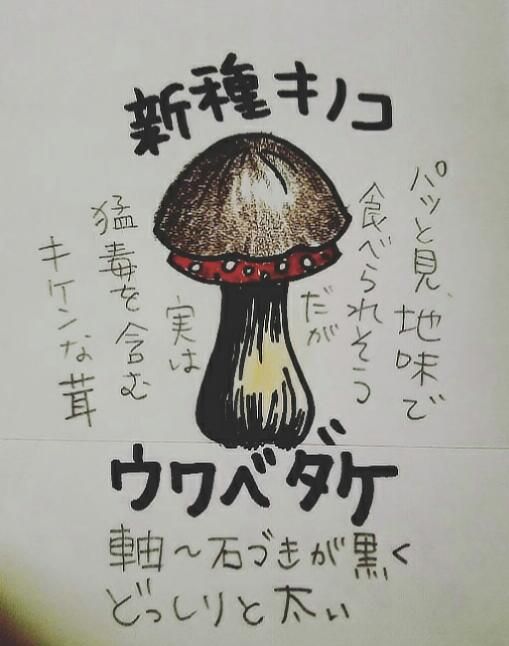 新種キノコ
パッと見、地味で
食べられそう
だが
実は
猛毒を含む
キケンな茸
ウワベダケ
軸〜石づきが黒く
どっしりと太い